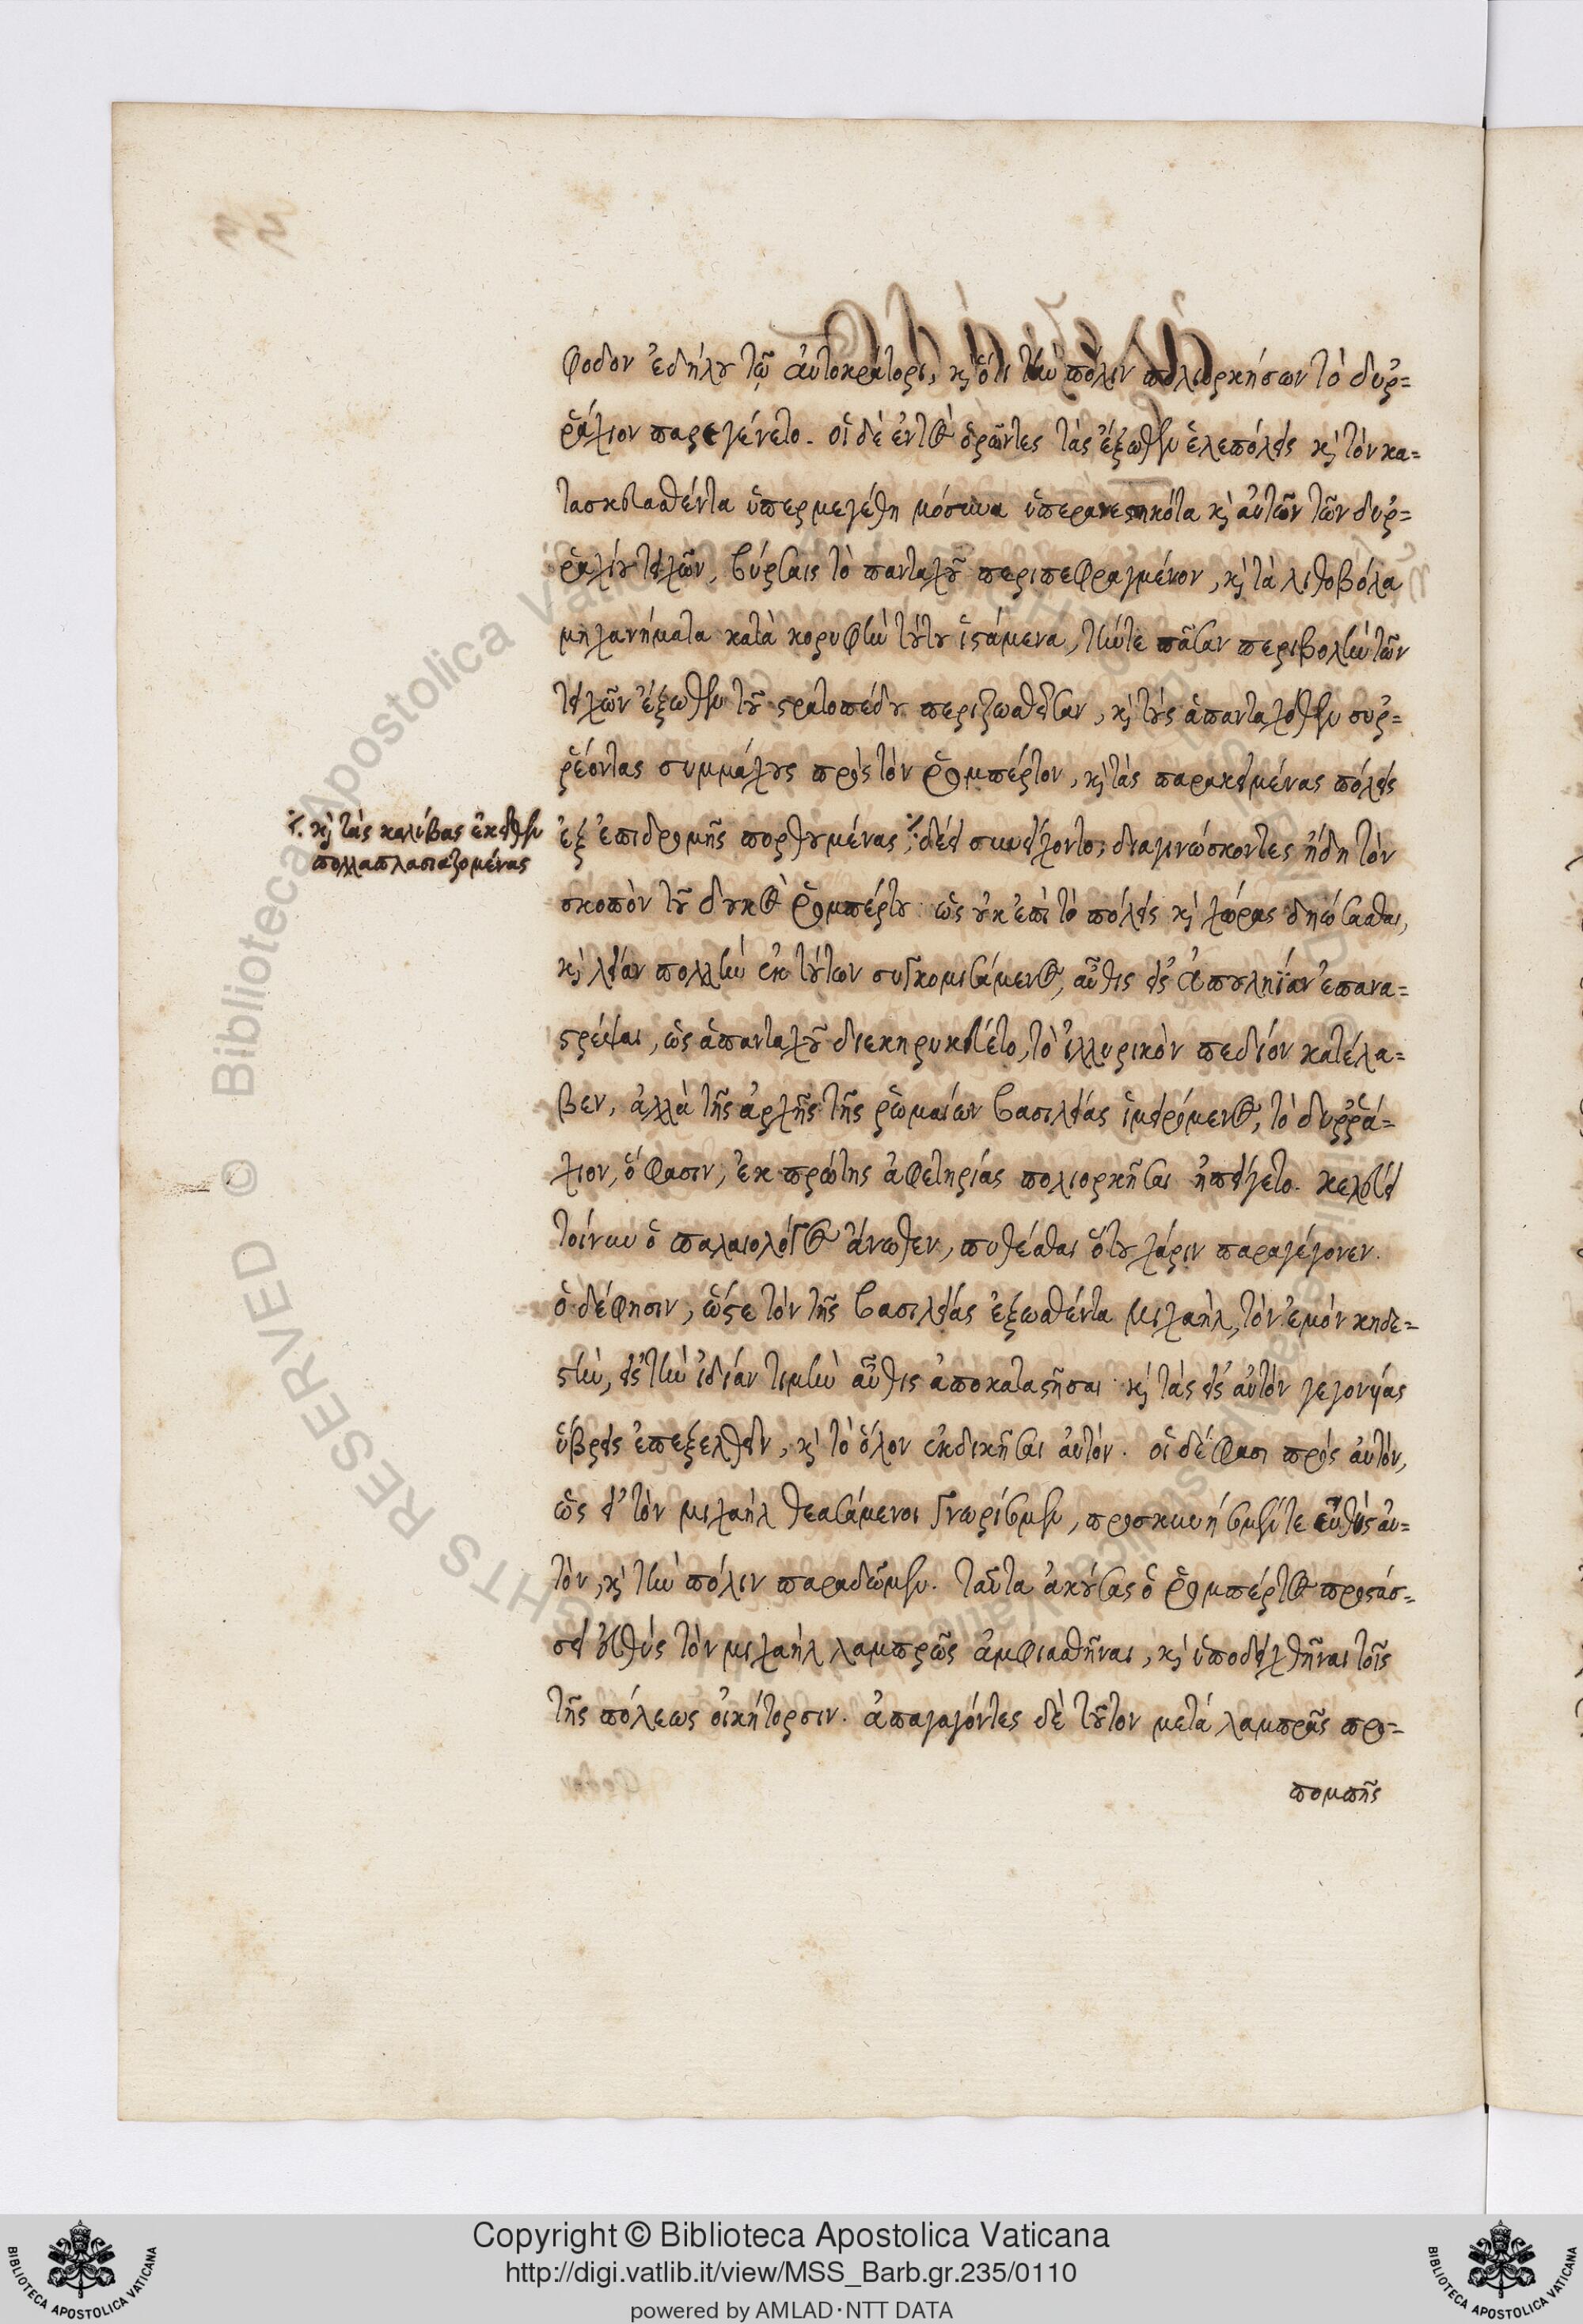 φοδον ἐδήλου τῷ αὐτοκράτορι, καὶ ὅτι τὴν πόλιν πολιορκήσων τὸ δυῤ=
ῥάχιον παρεγένετο. οἱ δὲ ἐντὸς ὁρῶντες τὰς ἔξωθεν ἑλεπόλεις καὶ τὸν κα=
τασκευασθέντα ὑπερμεγέθη μόσυνα ὑπερανεστηκότα καὶ αὐτῶν τῶν δυῤ=
ῥαχίου τειχῶν, βύρσαις τὸ πανταχοῦ περιπεφραγμένον, καὶ τὰ λιθοβόλα
μηχανήματα κατὰ κορυφὴν τούτου ἱστάμενα, τήντε πᾶσαν περιβολὴν τῶν
τειχῶν ἔξωθεν τοῦ στρατοπέδου περιζωσθεῖσαν, καὶ τοὺς ἁπανταχόθεν συῤ=
ῥέοντας συμμάχους πρὸς τὸν ῥομπέρτον, καὶ τὰς παρακειμένας πόλεις
ἐξ ἐπιδρομῆς πορθουμένας ·/· δέει συνείχοντο, διαγινώσκοντες ἤδη τὸν
·/· καὶ τὰς καλύβας ἐκεῖθεν
πολλαπλασιαζομένας
σκοπὸν τοῦ δουκὸς ῥομπέρτου ὡς οὐκ ἐπὶ τὸ πόλεις καὶ χώρας δηώσασθαι,
καὶ λείαν πολλὴν ἐκ τούτων συγκομισάμενος, αὖθις εἰς ἀπουληΐαν ἐπανα=
στρέψαι, ὡς ἁπανταχοῦ διεκηρυκεύετο, τὸ ἰλλυρικὸν πεδίον κατέλα=
βεν, ἀλλὰ τῆς ἀρχῆς τῆς ῥωμαίων βασιλείας ἱμειρόμενος, τὸ δυῤῥά=
χιον, ὅ φασιν, ἐκ πρώτης ἀφετηρίας πολιορκῆσαι ἠπείγετο. κελεύει
τοίνυν ὁ παλαιολόγος ἄνωθεν, πυθέσθαι ὅτου χάριν παραγέγονεν.
ὁ δέ φησιν, ὥστε τὸν τῆς βασιλείας ἐξωσθέντα μιχαὴλ, τὸν ἐμὸν κηδε=
στὴν, εἰς τὴν ἰδίαν τιμὴν αὖθις ἀποκαταστῆσαι καὶ τὰς εἰς αὐτὸν γεγονυίας
ὕβρεις ἐπεξελθεῖν, καὶ τὸ ὅλον ἐκδικῆσαι αὐτόν. οἱ δέ φασι πρὸς αὐτὸν,
ὡς εἰ τὸν μιχαὴλ θεασάμενοι γνωρίσωμεν, προσκυνήσωμέν τε εὐθὺς αὐ=
τὸν, καὶ τὴν πόλιν παραδῶμεν. ταῦτα ἀκούσας ὁ ῥομπέρτος προστάσ=
σει εὐθὺς τὸν μιχαὴλ λαμπρῶς ἀμφιασθῆναι, καὶ ὑποδειχθῆναι τοῖς
τῆς πόλεως οἰκήτορσιν. ἀπαγαγόντες δὲ τοῦτον μετὰ λαμπρᾶς προ=
πομπῆς
Copyright © Biblioteca Apostolica Vaticana
http://digi.vatlib.it/view/MSS_Barb.gr.235/0110
powered by AMLAD·NTT DATA
BIBLIOTECA APOSTOLICA VATICANA
BIBLIOTECA APOSTOLICA VATICANA